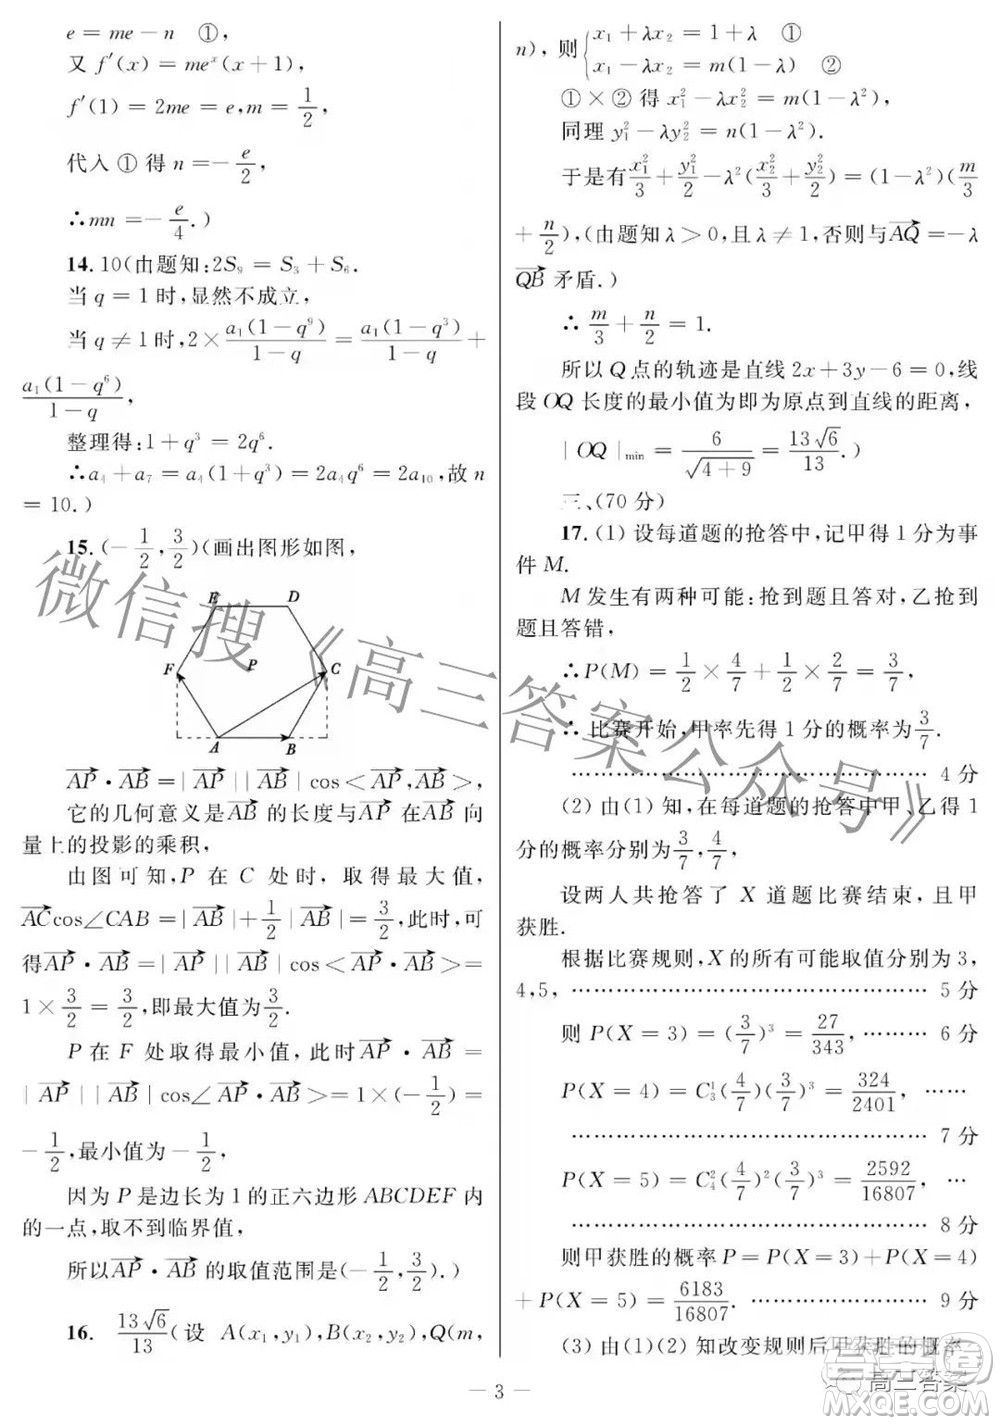 e = me − n　①，
又 f′(x) = meˣ(x+1),
f′(1) = 2me = e, m = 1/2,
代入 ① 得 n = −e/2,
∴mn = −e/4.)
14. 10(由题知:2S₉ = S₃ + S₆.
当 q = 1 时,显然不成立,
当 q ≠ 1 时,2 × a₁(1−q⁹)/(1−q) = a₁(1−q³)/(1−q) +
a₁(1−q⁶)/(1−q),
整理得:1 + q³ = 2q⁶.
∴a₄ + a₇ = a₄(1+q³) = 2a₄q⁶ = 2a₁₀,故 n
= 10.)
15. (−1/2, 3/2)(画出图形如图,
E D
F P C
A B
AP·AB = |AP||AB|cos<AP,AB>,
它的几何意义是AB 的长度与AP 在AB 向
量上的投影的乘积,
由图可知,P 在 C 处时,取得最大值,
ACcos∠CAB = |AB| + 1/2|AB| = 3/2,此时,可
得AP·AB = |AP||AB|cos<AP·AB> =
1 × 3/2 = 3/2,即最大值为3/2.
P 在 F 处取得最小值,此时AP·AB =
|AP||AB|cos∠AP·AB> = 1×(−1/2) =
−1/2,最小值为 −1/2,
因为 P 是边长为 1 的正六边形 ABCDEF 内
的一点,取不到临界值,
所以AP·AB 的取值范围是(−1/2, 3/2).)
16. 13√6/13(设 A(x₁,y₁),B(x₂,y₂),Q(m,
n),则{x₁ + λx₂ = 1 + λ　①
x₁ − λx₂ = m(1−λ)　②
① × ② 得 x₁² − λx₂² = m(1−λ²),
同理 y₁² − λy₂² = n(1−λ²).
于是有 x₁²/3 + y₁²/2 − λ²(x₂²/3 + y₂²/2) = (1−λ²)(m/3
+ n/2),(由题知 λ > 0,且 λ ≠ 1,否则与AQ = −λ
QB 矛盾.)
∴ m/3 + n/2 = 1.
所以 Q 点的轨迹是直线 2x + 3y − 6 = 0,线
段 OQ 长度的最小值为即为原点到直线的距离,
|OQ|min = 6/√(4+9) = 13√6/13.)
三、(70 分)
17. (1) 设每道题的抢答中,记甲得 1 分为事
件 M.
M 发生有两种可能:抢到题且答对,乙抢到
题且答错,
∴P(M) = 1/2 × 4/7 + 1/2 × 2/7 = 3/7,
∴ 比赛开始,甲率先得 1 分的概率为3/7.
………………………………………… 4 分
(2) 由(1) 知,在每道题的抢答中甲、乙得 1
分的概率分别为3/7, 4/7,
设两人共抢答了 X 道题比赛结束,且甲
获胜.
根据比赛规则,X 的所有可能取值分别为 3,
4,5, ………………………………………… 5 分
则 P(X = 3) = (3/7)³ = 27/343, ……… 6 分
P(X = 4) = C₃¹(4/7)(3/7)³ = 324/2401, ……
………………………………………… 7 分
P(X = 5) = C₄²(4/7)²(3/7)³ = 2592/16807, …
………………………………………… 8 分
则甲获胜的概率 P = P(X = 3) + P(X = 4)
+ P(X = 5) = 6183/16807. ……………… 9 分
(3) 由(1)(2) 知改变规则后甲获胜的概率
— 3 —
微信搜《高三答案公众号》
高三答案